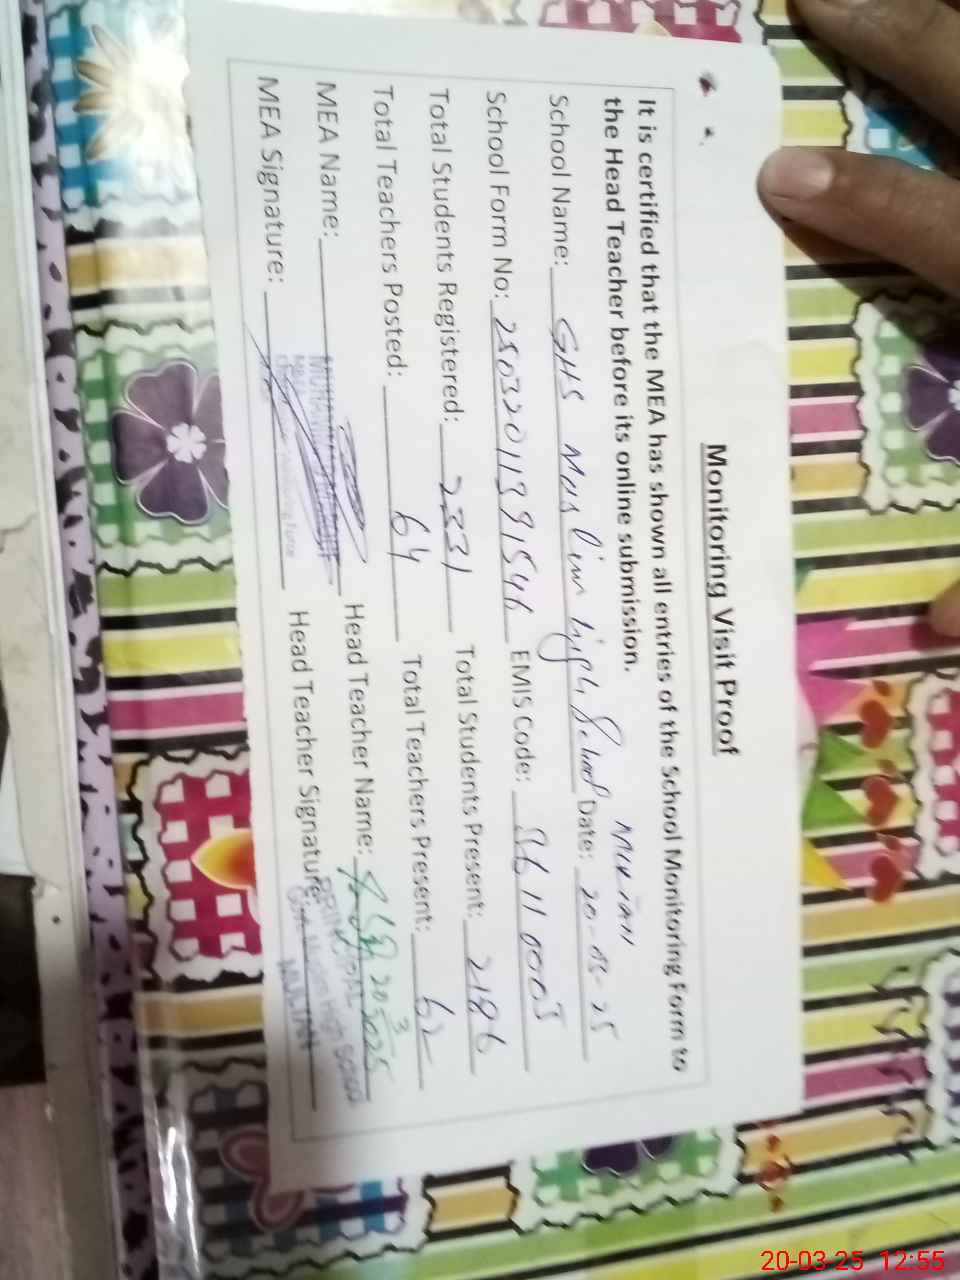 Monitoring Visit Proof
It is certified that the MEA has shown all entries of the School Monitoring Form to
the Head Teacher before its online submission.
School Name: GHS Muslim high School MULTAN Date: 20-03-25
School Form No: 25032011391546 EMIS Code: 36110003
Total Students Registered: 2331 Total Students Present: 2186
Total Teachers Posted: 64 Total Teachers Present: 62
MEA Name: MUHAMMAD Head Teacher Name:
MEA Signature: Head Teacher Signature:
PRINCIPAL
Govt. Muslim High School
MULTAN
20-03-25 12:55